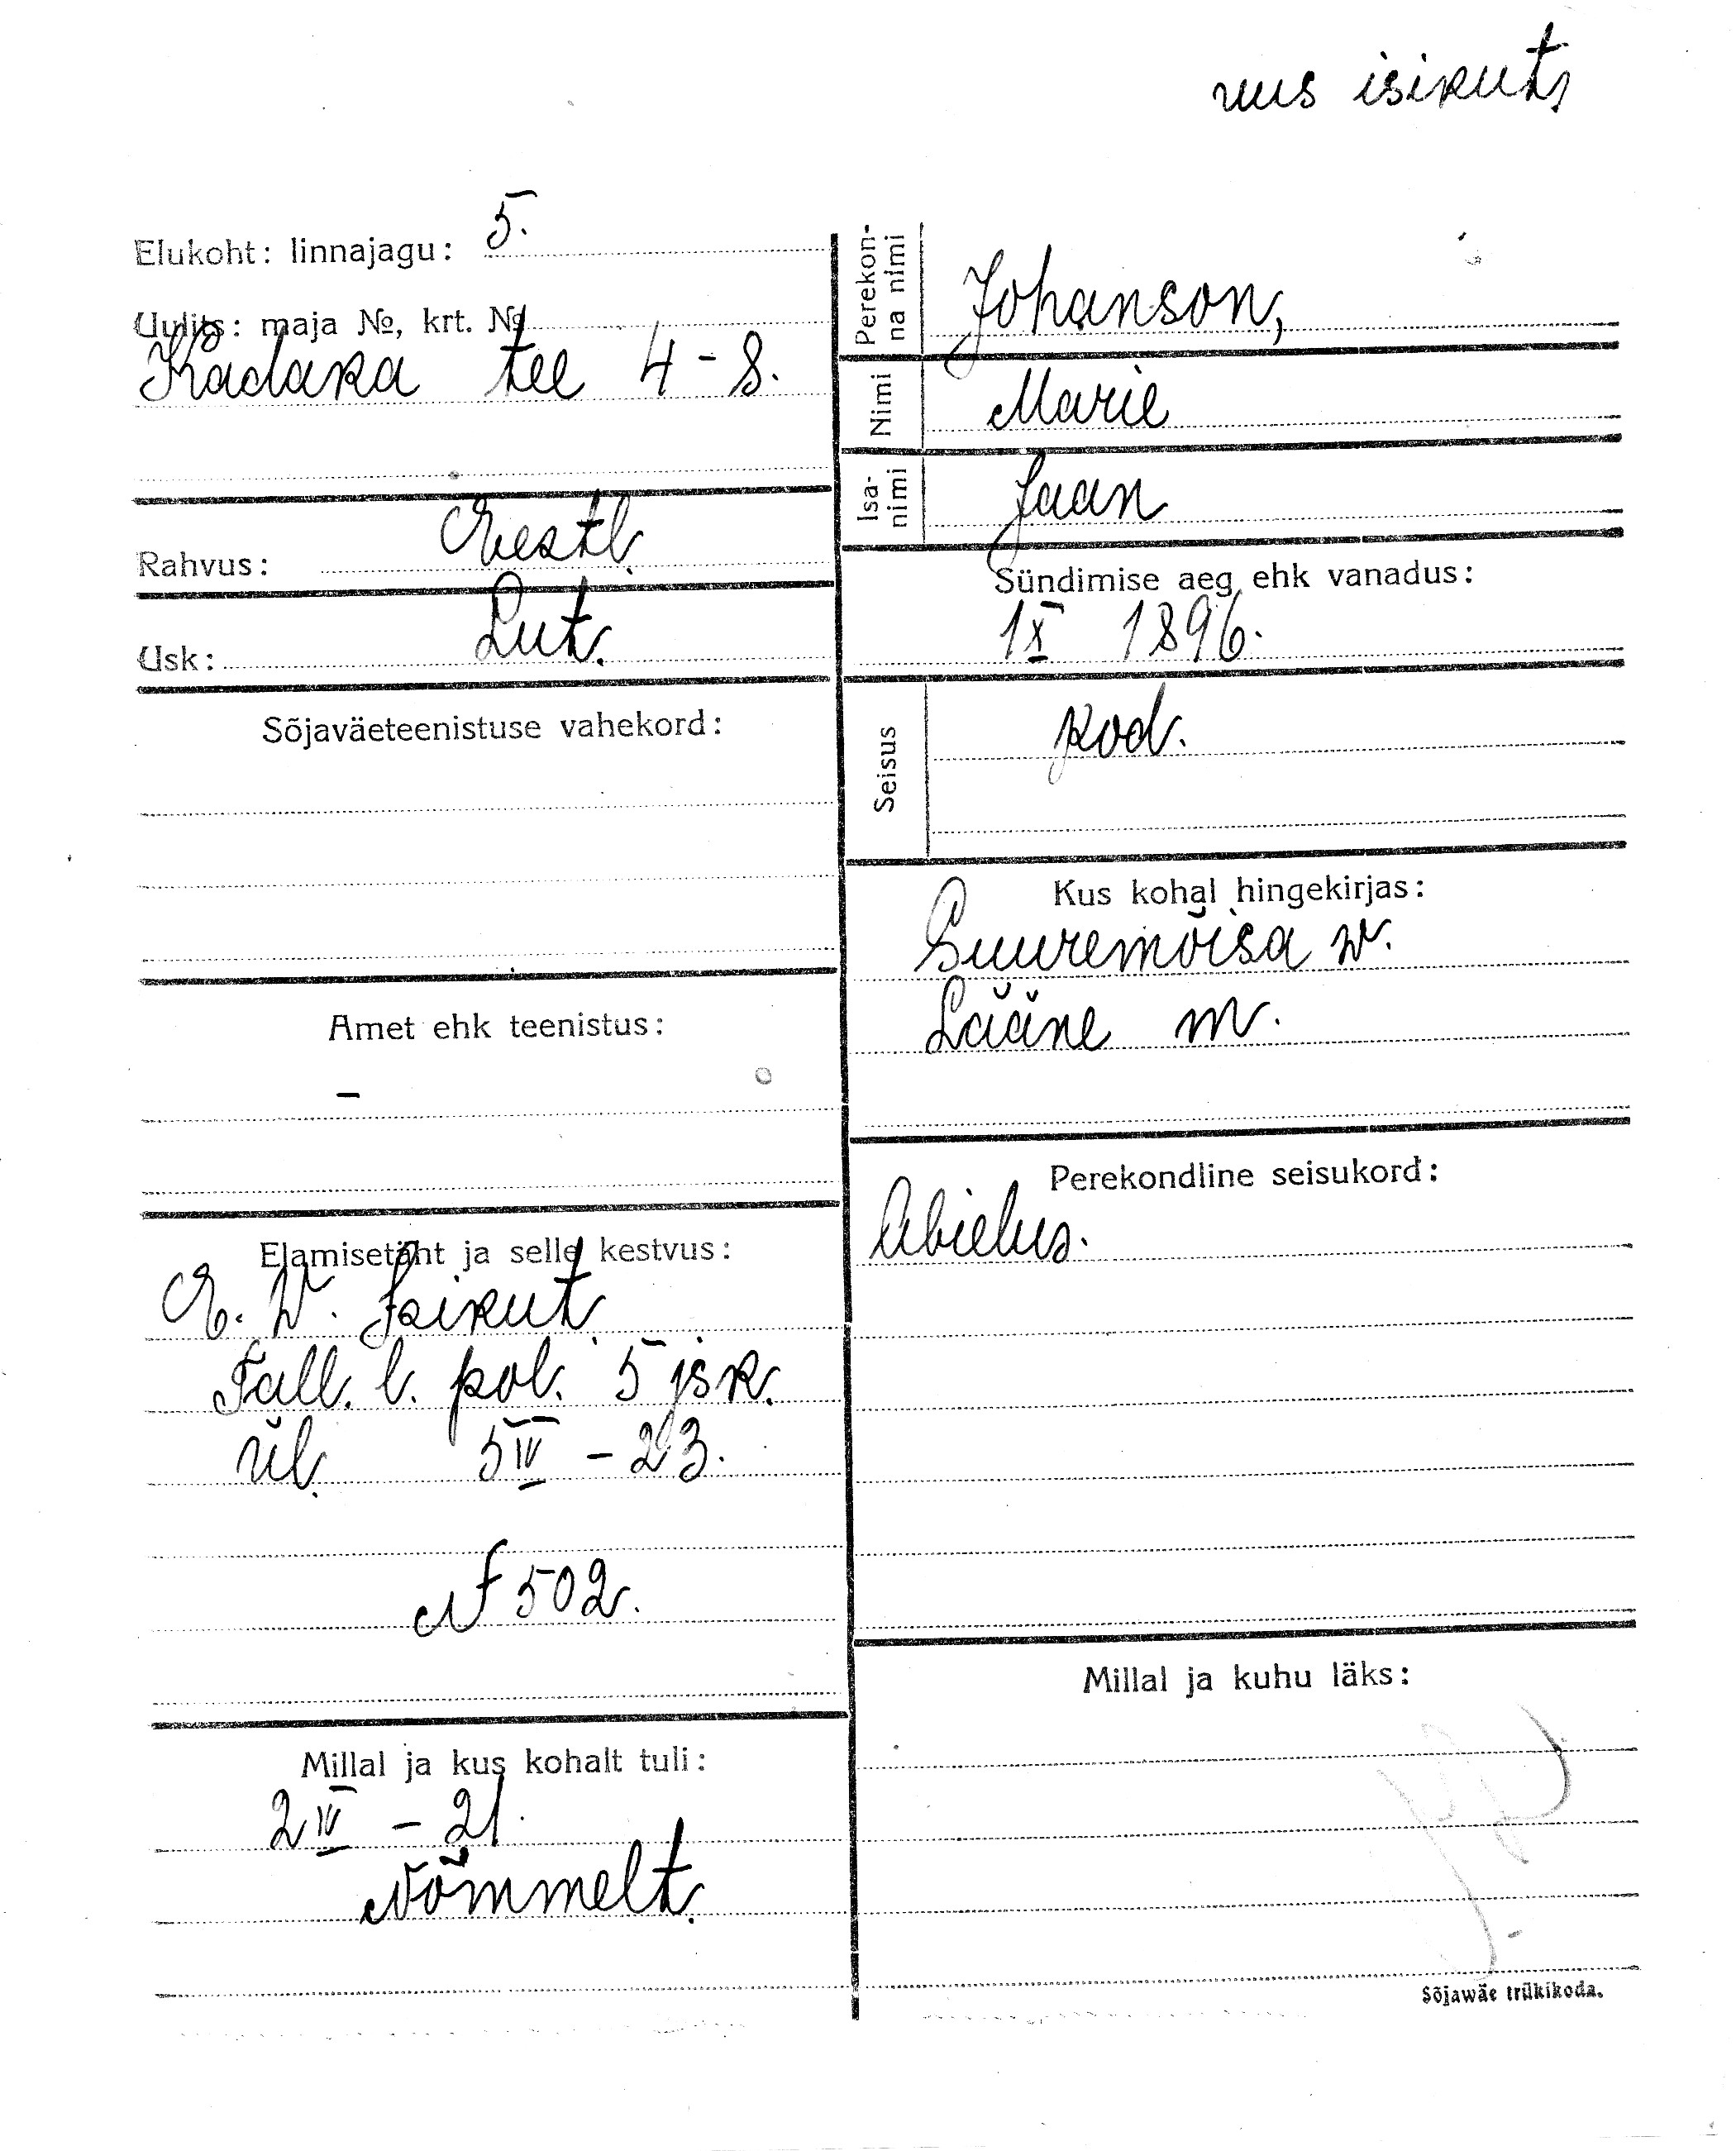 uus isikut.
Elukoht: linnajagu: 5.
Uulits: maja №, krt. №
Kadaka tee 4 - 8.
Rahvus: Eestl.
Usk: Lut.
Sõjaväeteenistuse vahekord:
Amet ehk teenistus:
–
Elamisetäht ja selle kestvus:
E. W. Isikut.
Tall. l. pol. 5 jsk.
ül. 5 IV - 23.
N 502.
Millal ja kus kohalt tuli:
2 IV - 21.
Nõmmelt.
Perekon-
na nimi Johanson,
Nimi Marie
Isa-
nimi Jaan
Sündimise aeg ehk vanadus:
1 X 1896.
Seisus kod.
Kus kohal hingekirjas:
Suuremõisa w.
Lääne m.
Perekondline seisukord:
Abielus.
Millal ja kuhu läks:
Sõjawäe trükikoda.